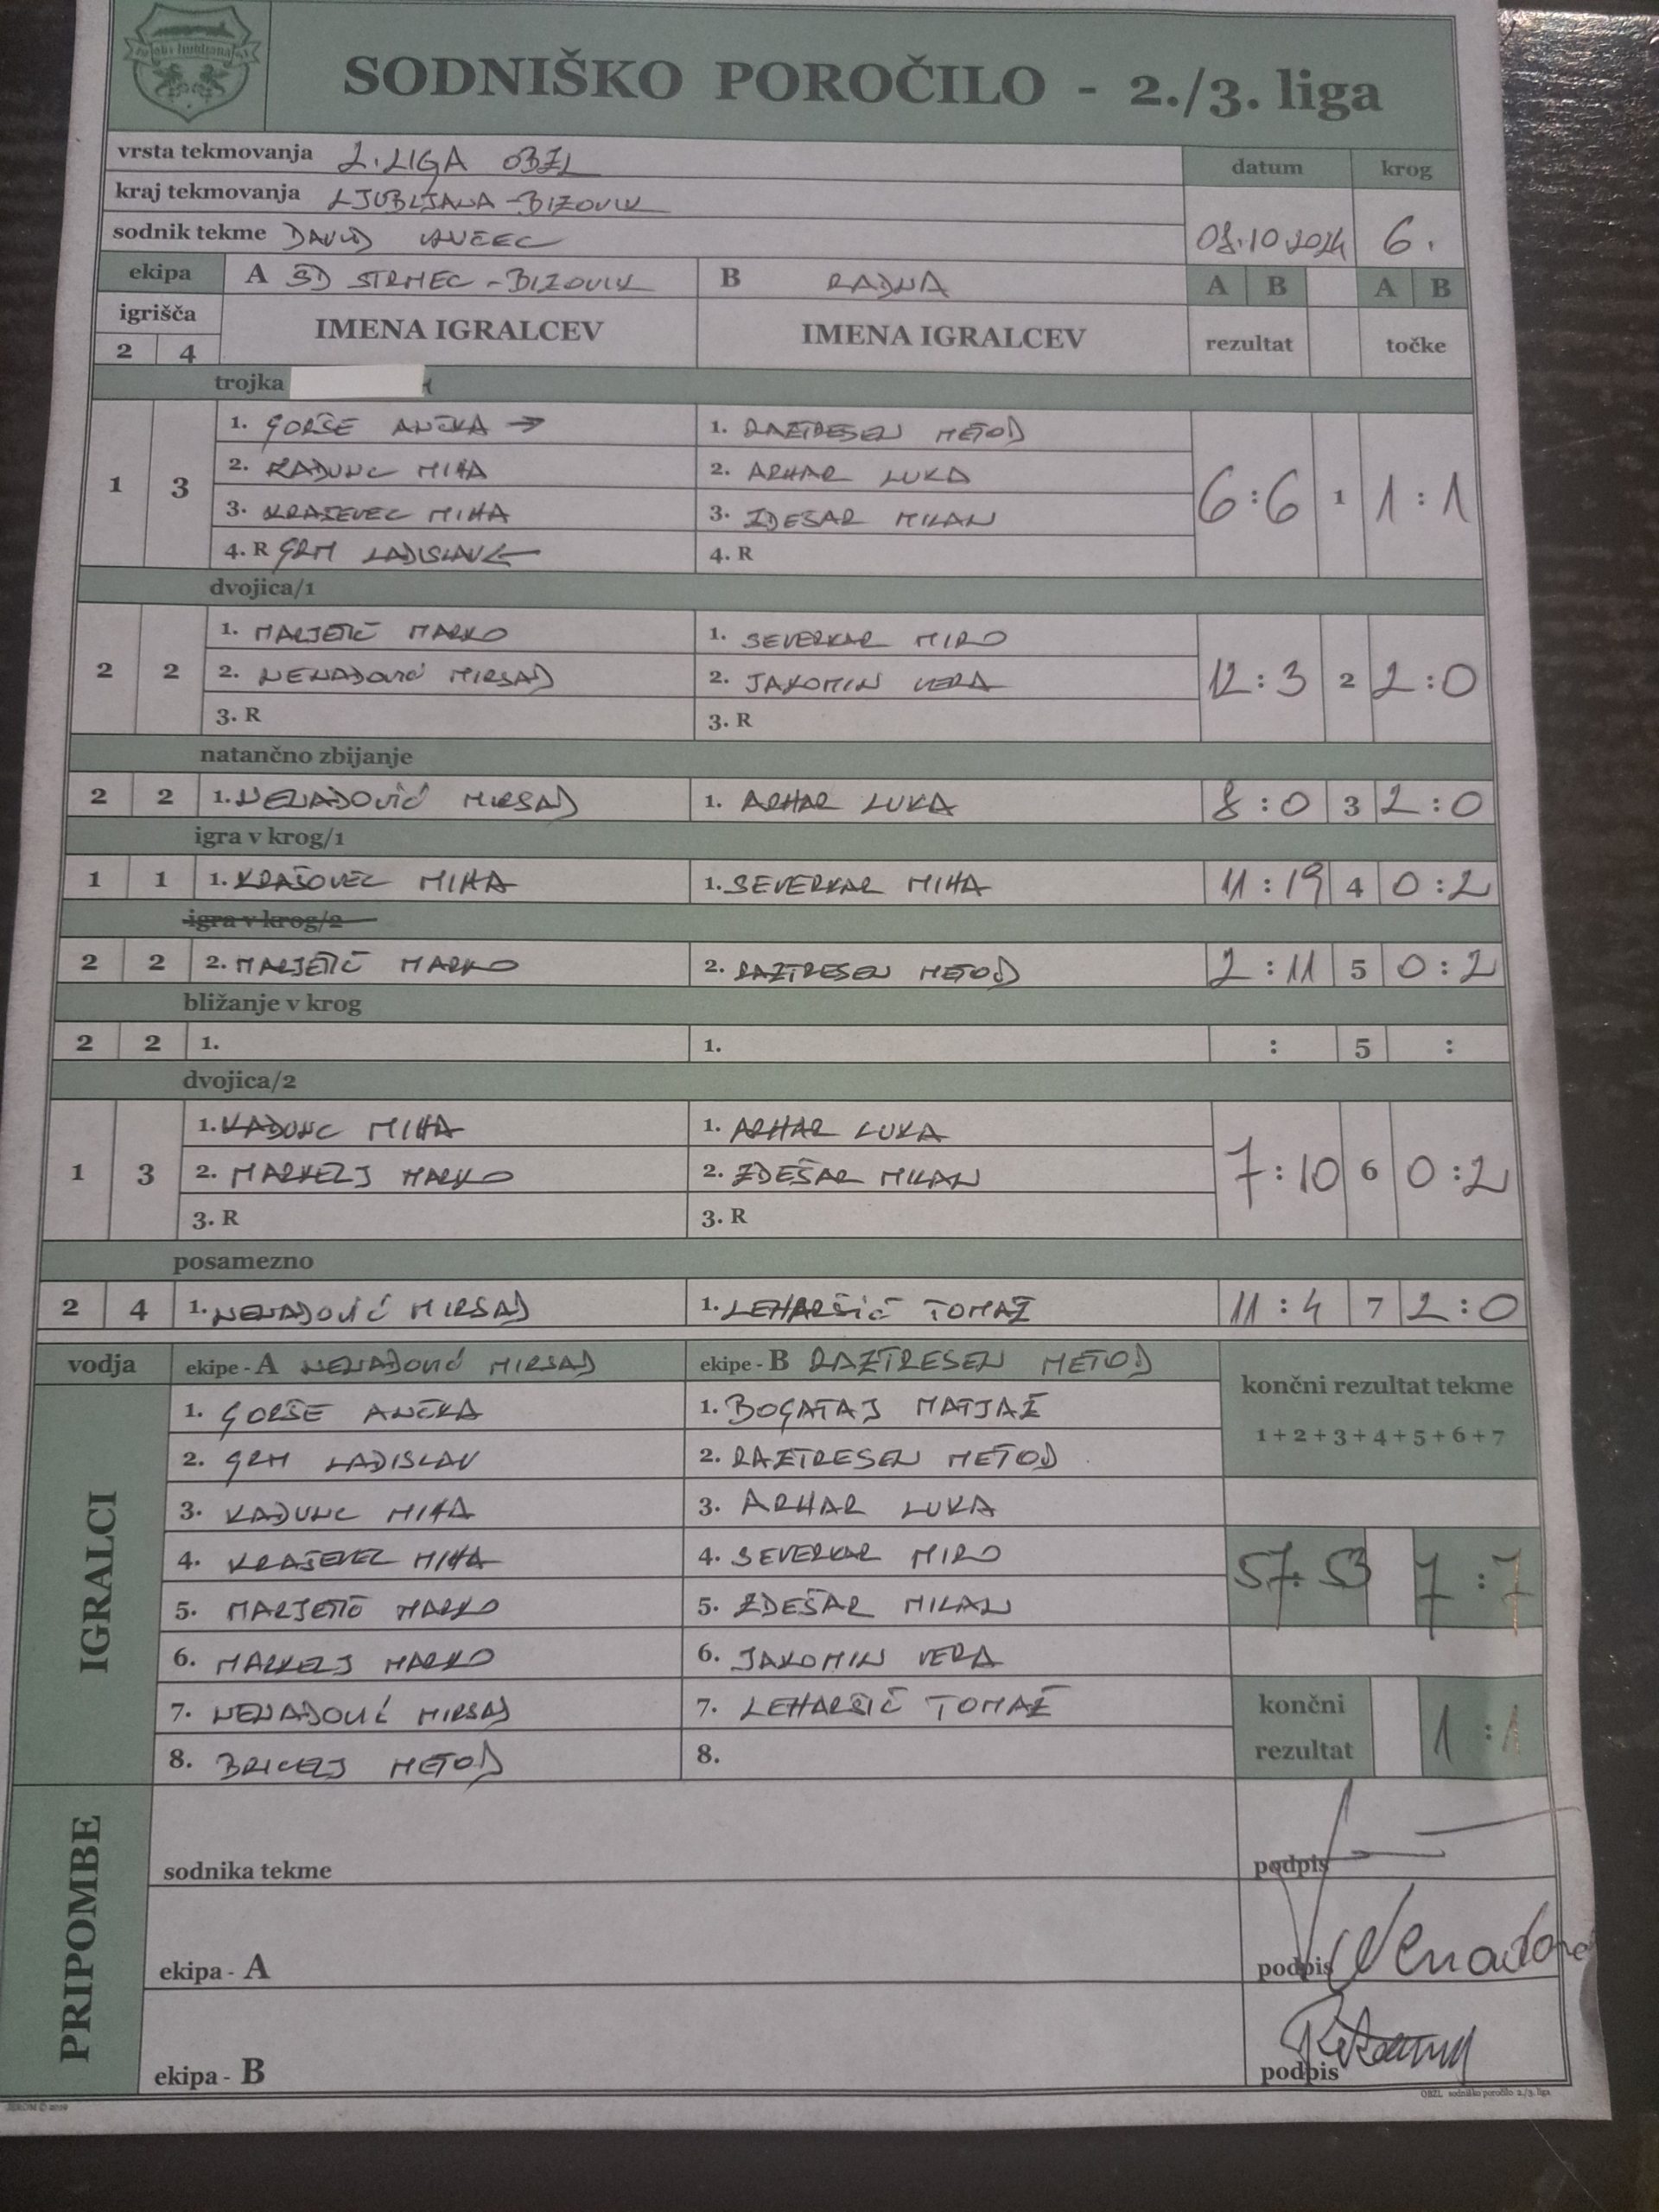 SODNIŠKO POROČILO - 2./3. liga
vrsta tekmovanja 2. LIGA OBZL
datum krog
kraj tekmovanja LJUBLJANA - BIZOVIK
sodnik tekme DAVID
08.10 2024 6.
ekipa A ŠD STRMEC - BIZOVIK B RADNA A B A B
igrišča IMENA IGRALCEV IMENA IGRALCEV rezultat točke
2 4
trojka
1 3 6:6 1 1:1
1. GORŠE ANČKA → 1. RAZTRESEN METOD
2. KADUNC MIHA 2. ARHAR LUKA
3. KRAŠEVEC MIHA 3. ZDEŠAR MILAN
4. R GRM LADISLAV ← 4. R
dvojica/1
2 2 12:3 2 2:0
1. MARJETIČ MARKO 1. SEVERKAR MIRO
2. NENADOVIĆ MIRSAD 2. JAKOMIN VERA
3. R 3. R
natančno zbijanje
2 2 1. NENADOVIĆ MIRSAD 1. ARHAR LUKA 8:0 3 2:0
igra v krog/1
1 1 1. KRAŠOVEC MIHA 1. SEVERKAR MIHA 11:19 4 0:2
igra v krog/2
2 2 2. MARJETIČ MARKO 2. RAZTRESEN METOD 2:11 5 0:2
bližanje v krog
2 2 1. 1. : 5 :
dvojica/2
1 3 7:10 6 0:2
1. KADUNC MIHA 1. ARHAR LUKA
2. MARKELJ MARKO 2. ZDEŠAR MILAN
3. R 3. R
posamezno
2 4 1. NENADOVIĆ MIRSAD 1. LEHARŠIČ TOMAŽ 11:4 7 2:0
vodja ekipe - A NENADOVIĆ MIRSAD ekipe - B RAZTRESEN METOD
končni rezultat tekme
1 + 2 + 3 + 4 + 5 + 6 + 7
IGRALCI
1. GORŠE ANČKA 1. BOGATAJ MATJAŽ
2. GRM LADISLAV 2. RAZTRESEN METOD
3. KADUNC MIHA 3. ARHAR LUKA
4. KRAŠEVEC MIHA 4. SEVERKAR MIRO
57:53 7:7
5. MARJETIČ MARKO 5. ZDEŠAR MILAN
6. MARKELJ MARKO 6. JAKOMIN VERA
7. NENADOVIĆ MIRSAD 7. LEHARŠIČ TOMAŽ
končni rezultat 1:1
8. BRICELJ METOD 8.
PRIPOMBE
sodnika tekme podpis
ekipa - A podpis
ekipa - B podpis
OBZL sodniško poročilo 2./3. liga